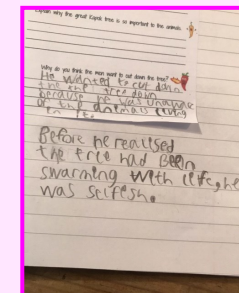 Explain why the great Kapok tree is so important to the animals.
Why do you think the man want to cut down the tree?
He wanted to cut down
the tree down
because he was unaware
of the animals living
in it.
Before he realised
the tree had Been
swarming with life, he
was selfesh.